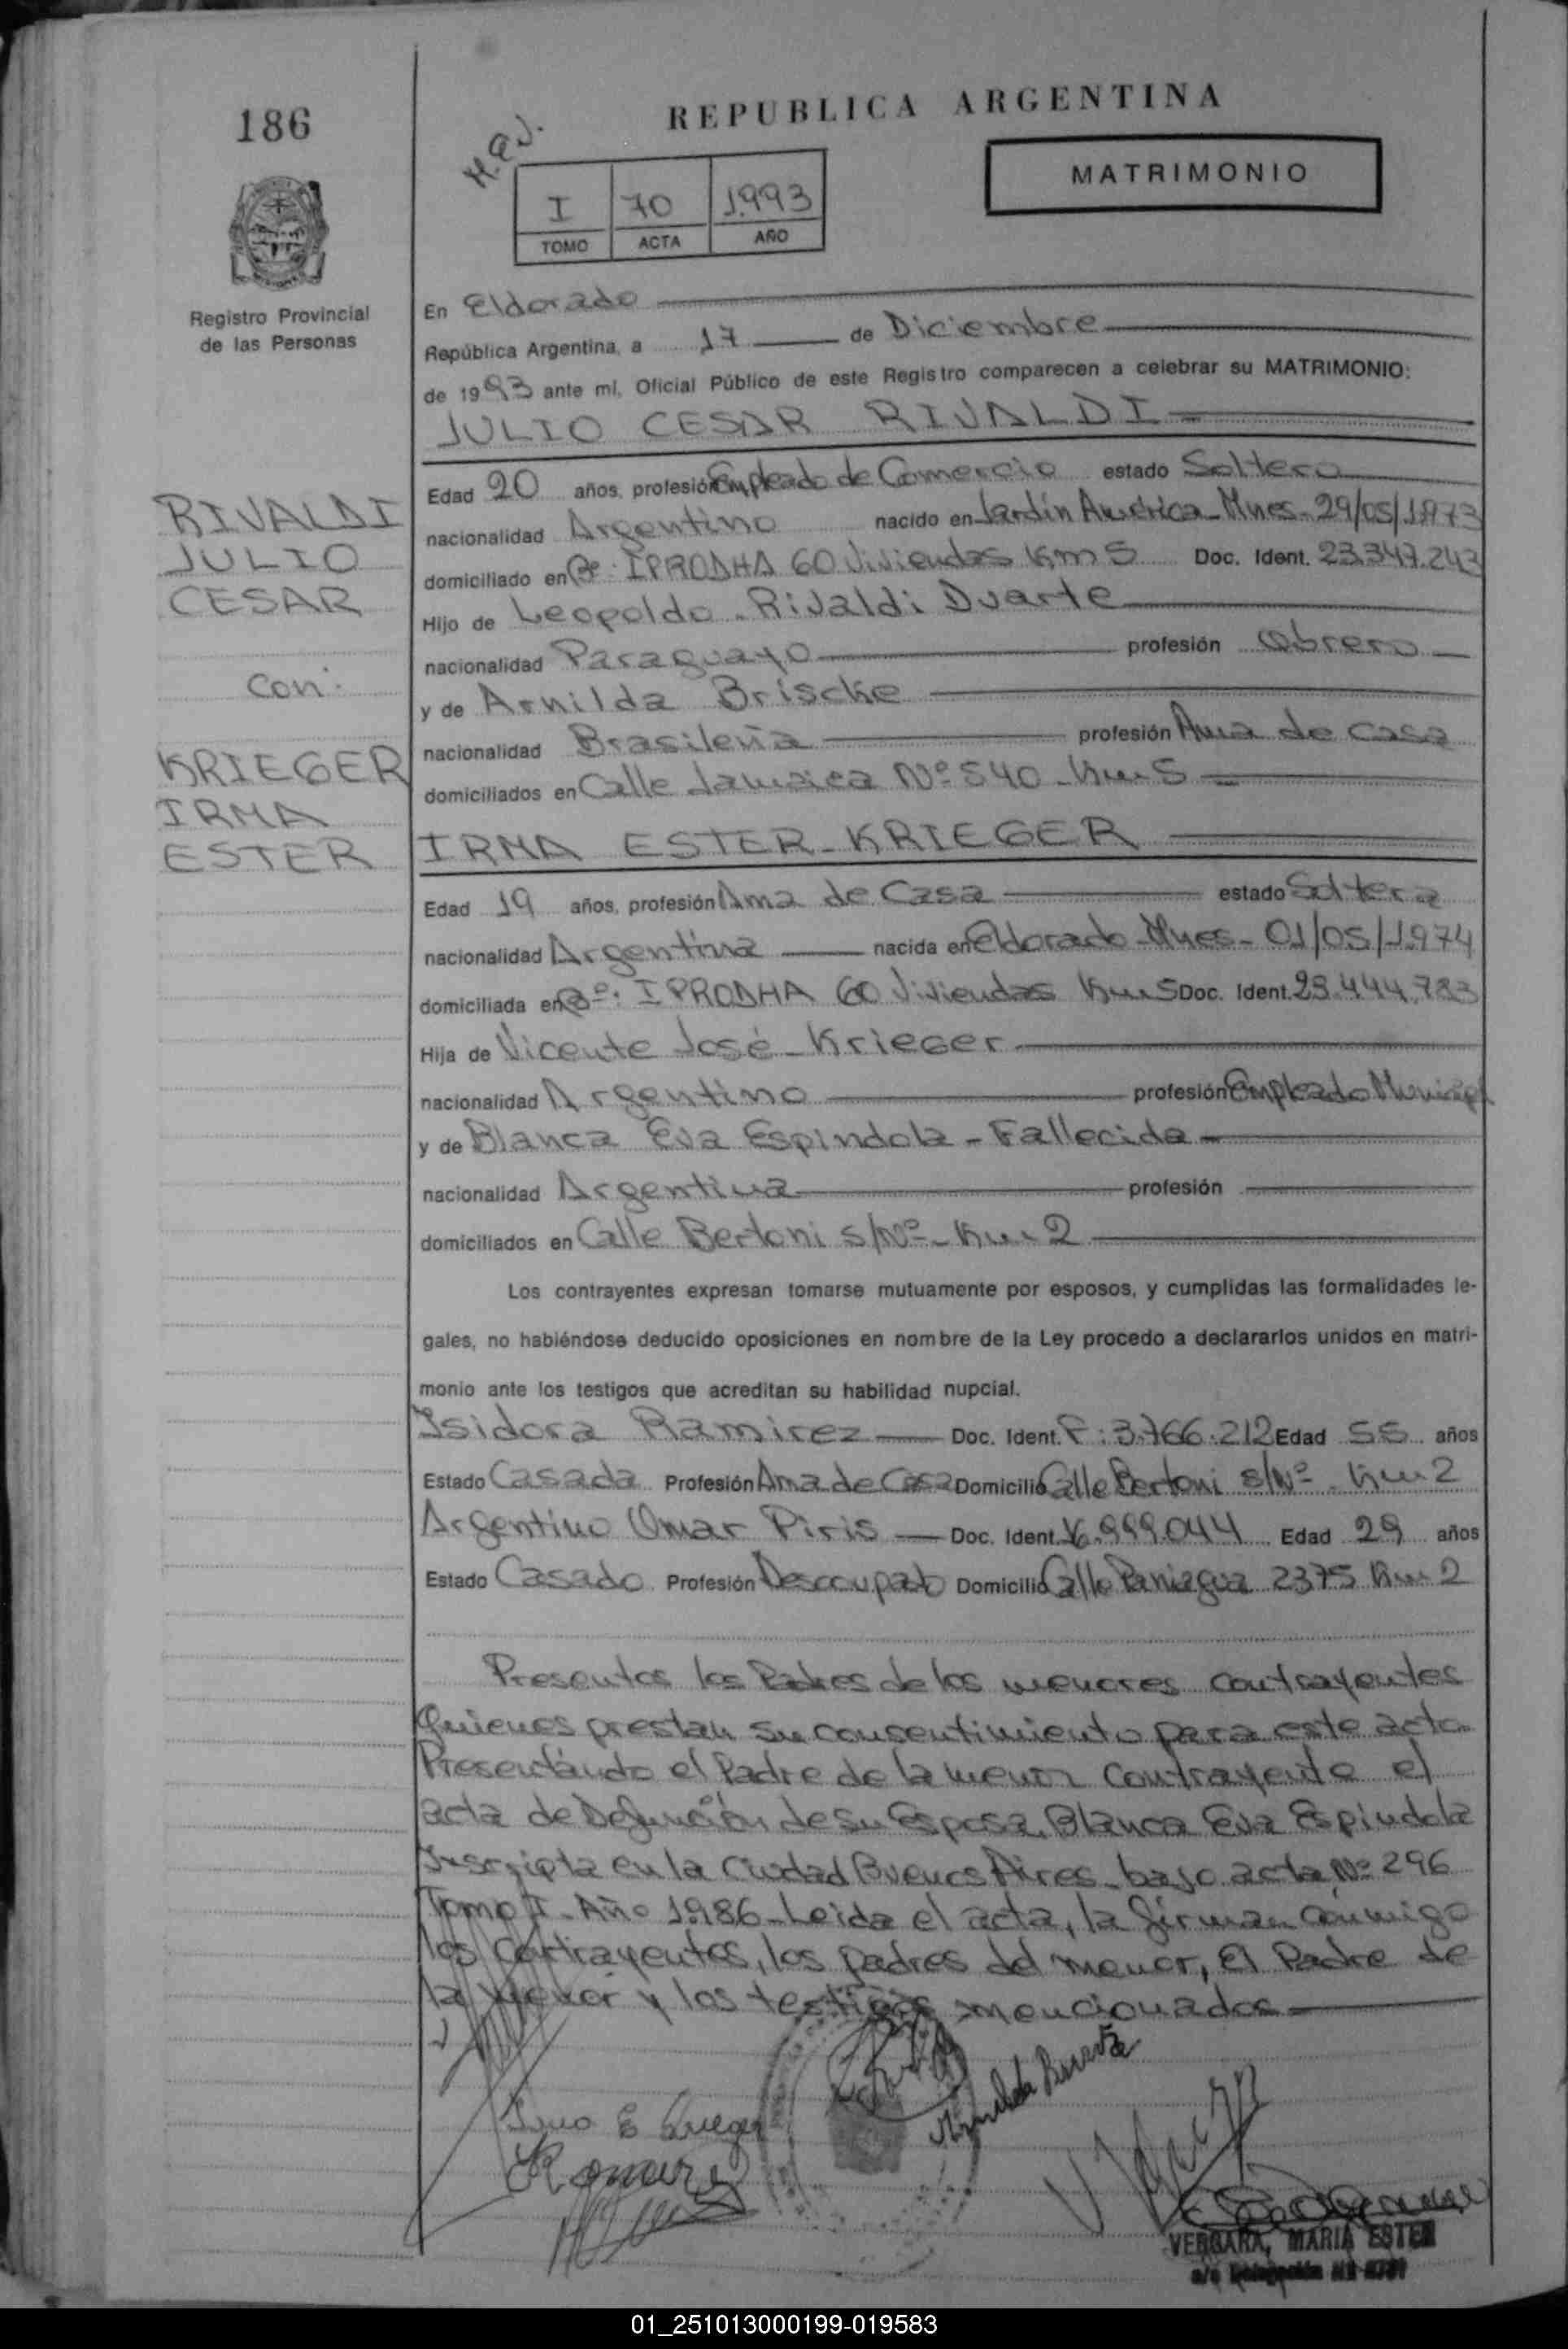 186
REPUBLICA ARGENTINA
MATRIMONIO
I 70 1993
TOMO ACTA AÑO
Registro Provincial
de las Personas
En Eldorado
República Argentina, a 17 de Diciembre
de 1993 ante mí, Oficial Público de este Registro comparecen a celebrar su MATRIMONIO:
JULIO CESAR RIVALDI
RIVALDI
JULIO
CESAR
con:
KRIEGER
IRMA
ESTER
Edad 20 años, profesión Empleado de Comercio estado Soltero
nacionalidad Argentino nacido en Jardín América - Mnes - 29/05/1973
domiciliado en Bº: IPRODHA 60 Viviendas Km 5 Doc. Ident. 23.347.243
Hijo de Leopoldo - Rivaldi Duarte
nacionalidad Paraguayo profesión Obrero
y de Arnilda Brischke
nacionalidad Brasileña profesión Ama de casa
domiciliados en Calle Jamaica Nº 540 - Km 5
IRMA ESTER - KRIEGER
Edad 19 años, profesión Ama de Casa estado Soltera
nacionalidad Argentina nacida en Eldorado - Mnes - 01/05/1974
domiciliada en Bº: IPRODHA 60 Viviendas Km 5 Doc. Ident. 23.444.783
Hija de Vicente José - Krieger
nacionalidad Argentino profesión Empleado Municipal
y de Blanca Eva Espindola - Fallecida
nacionalidad Argentina profesión
domiciliados en Calle Bertoni s/Nº - Km 2
Los contrayentes expresan tomarse mutuamente por esposos, y cumplidas las formalidades le-
gales, no habiéndose deducido oposiciones en nombre de la Ley procedo a declararlos unidos en matri-
monio ante los testigos que acreditan su habilidad nupcial.
Isidora Ramirez Doc. Ident. F: 3.766.212 Edad 55 años
Estado Casada Profesión Ama de Casa Domicilio Calle Bertoni s/Nº - Km 2
Argentino Omar Piris Doc. Ident. 16.999.044 Edad 29 años
Estado Casado Profesión Desocupado Domicilio Calle Paniagua 2375 Km 2
Presentes los Padres de los menores contrayentes
Quienes prestan su consentimiento para este acto.
Presentándo el Padre de la menor contrayente el
acta de Defunción de su Esposa, Blanca Eva Espindola
Inscripta en la Ciudad Buenos Aires - bajo acta Nº 296
Tomo I - Año 1986 - Leida el acta, la firman conmigo
los contrayentes, los padres del menor, el Padre de
la menor y los testigos mencionados
Irma E Krieger
VERGARA, MARIA ESTER
01_251013000199-019583